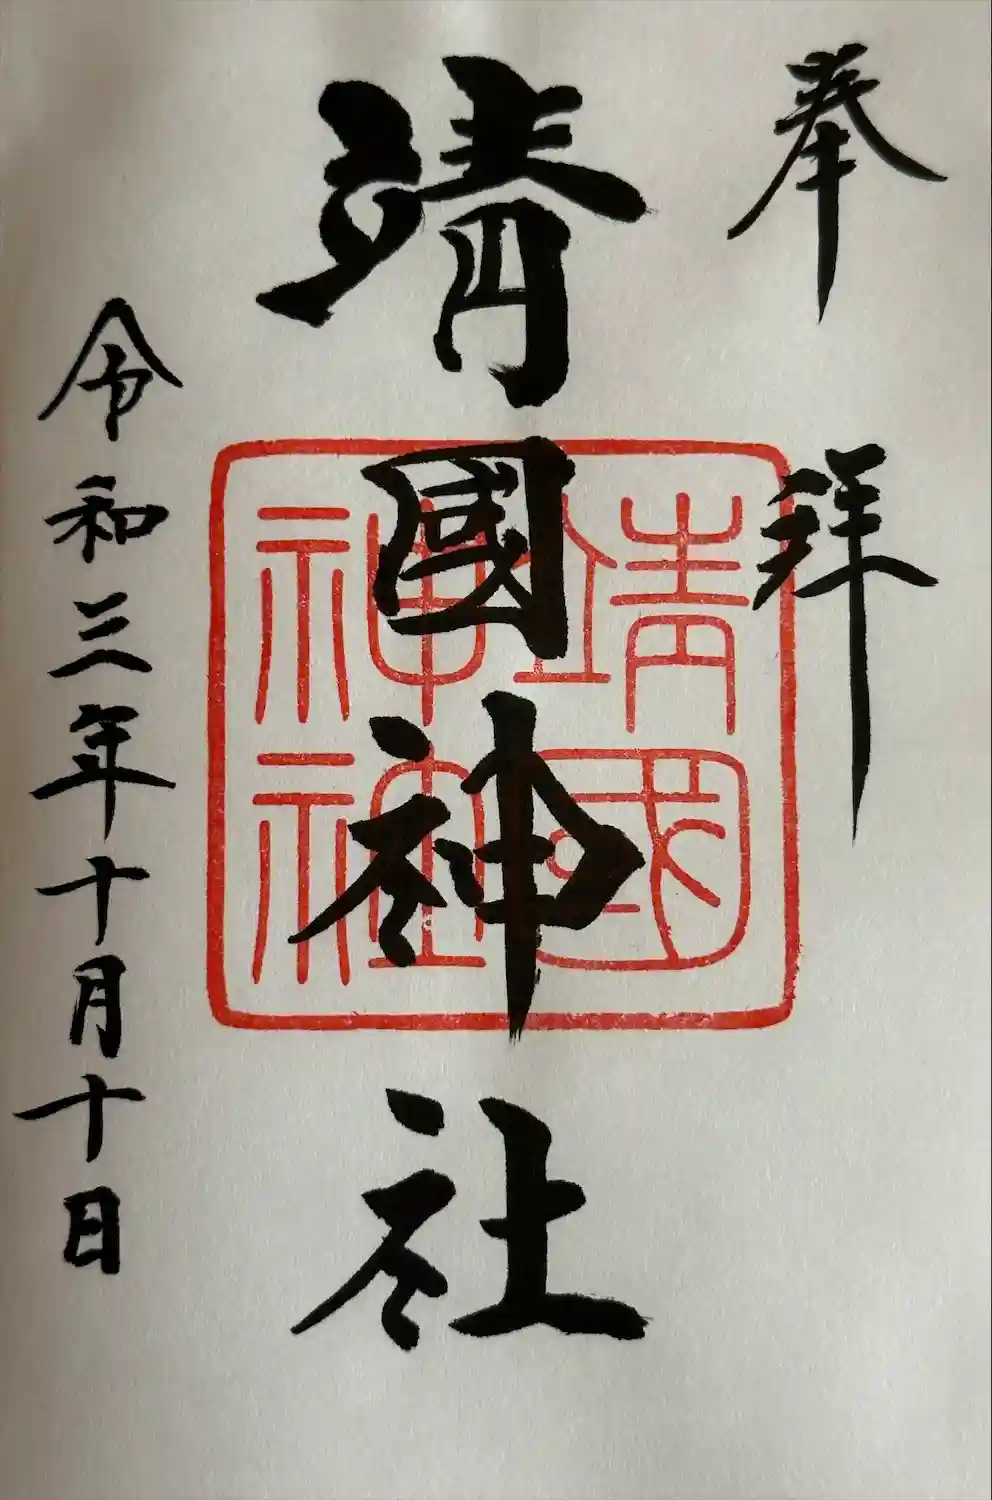 奉拝
靖國神社
靖國
神社
令和三年十月十日